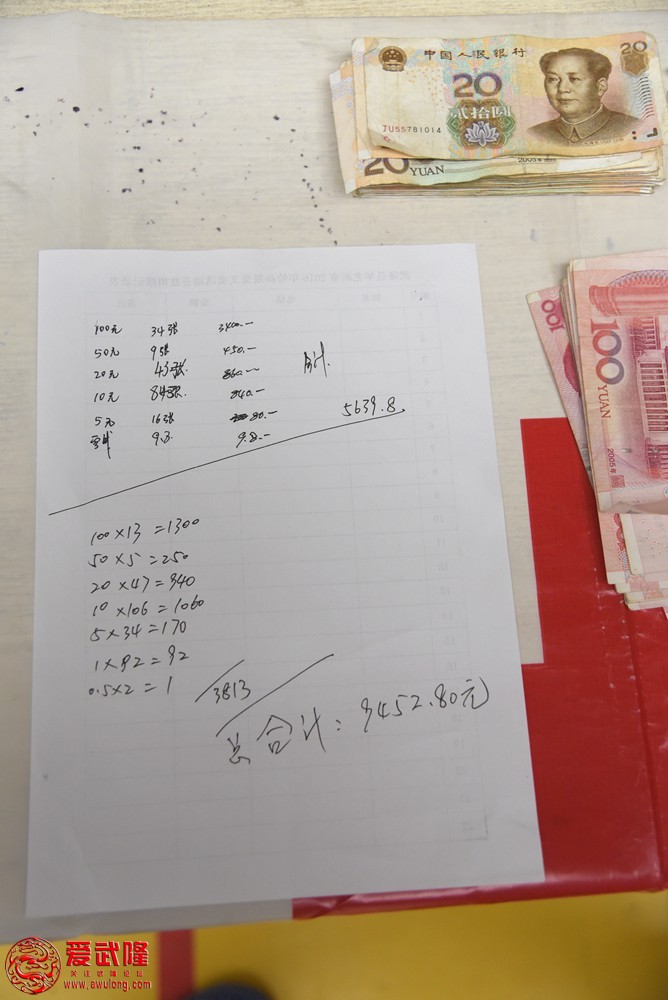 中国人民银行
20
20
贰拾圆
JU55781014
20
YUAN
2005年
100元 34张 3400.-
50元 9张 450.-
20元 43张 860.-
10元 84张 840.-
5元 16张 80.-
9.8.-
合计
5639.8
100
100
YUAN
2005年
100×13=1300
50×5=250
20×47=940
10×106=1060
5×34=170
1×92=92
0.5×2=1
3813
总合计:9452.80元
爱武隆
关注武隆论坛
www.ewulong.com